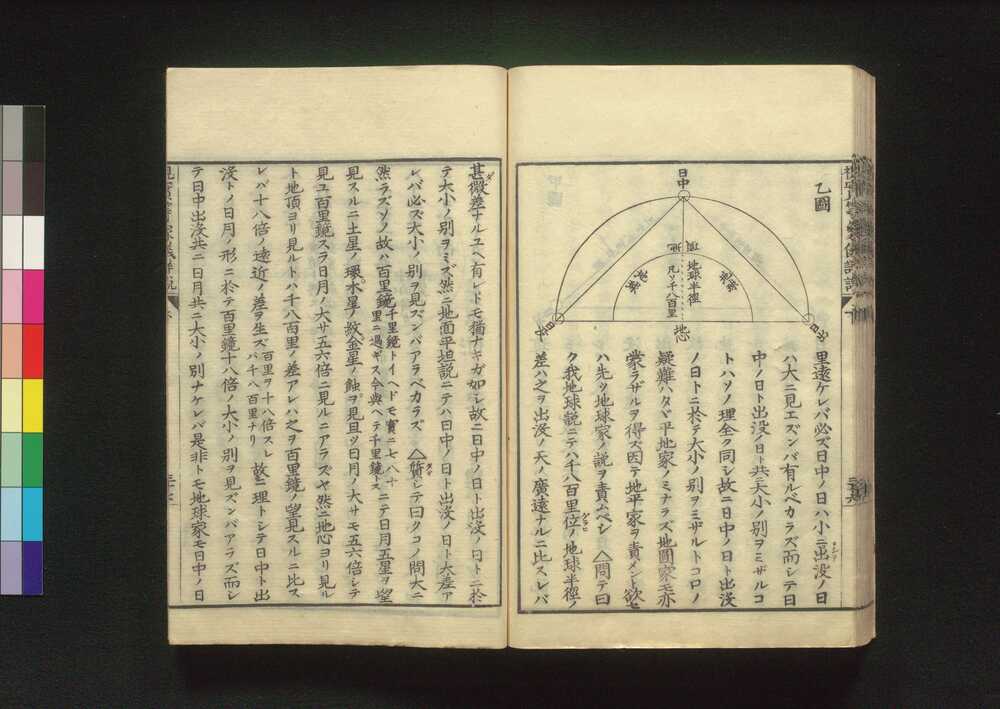 乙圖
日中
地球半徑
凡ソ千八百里
地心
里遠ケレバ必ズ日中ノ日ハ小ニ出没ノ日
ハ大ニ見エズンバ有ルベカラズ而シテ日
中ノ日ト出没ノ日ト共ニ大小ノ別ヲミザルコ
トハソノ理全ク同シ故ニ日中ノ日ト出没
ノ日トニ於テ大小ノ別ヲミザルトコロノ
疑難ハタヾ平地家ノミナラズ地圓家モ亦
蒙ラザルヲ得ズ因テ地平家ヲ責メント欲セ
ハ先ツ地球家ノ説ヲ責ムベシ △問テ曰
ク我地球説ニテハ千八百里位ノ地球半徑ノ
差ハ之ヲ出没ノ天ノ廣遠ナルニ比スレバ
甚微差ナルユヘ有レドモ猶ナキガ如シ故ニ日中ノ日ト出没ノ日トニ於
テ大小ノ別ヲミズ然ニ地面平坦説ニテハ日中ノ日ト出没ノ日ト大差ア
レバ必ズ大小ノ別ヲ見ズンバアラベカラズ △荅シテ曰クコノ問大ニ
然ラズソノ故ハ百里鏡千里鏡トイヘドモ實ニ七八十里ニ過ギス今與ヘテ千里鏡トスニテ日月五星ヲ望
見スルニ土星ノ環木星ノ紋金星ノ蝕ヲ見且ツ日月ノ大サモ五六倍シテ
見ユ百里鏡スラ日月ノ大サ五六倍ニ見ルニアラズヤ然ニ地心ヨリ見ル
ト地頂ヨリ見ルトハ千八百里ノ差アレハ之ヲ百里鏡ノ望見スルニ比ス
レバ十八倍ノ遠近ノ差ヲ生ズ百里ヲ十八倍スレバ千八百里ナリ故ニ理トシテ日中ト出
没トノ日月ノ形ニ於テ百里鏡十八倍ノ大小ノ別ヲ見ズンバアラズ而シ
テ日中出没共ニ日月共ニ大小ノ別ナケレバ是非トモ地球家モ日中ノ日